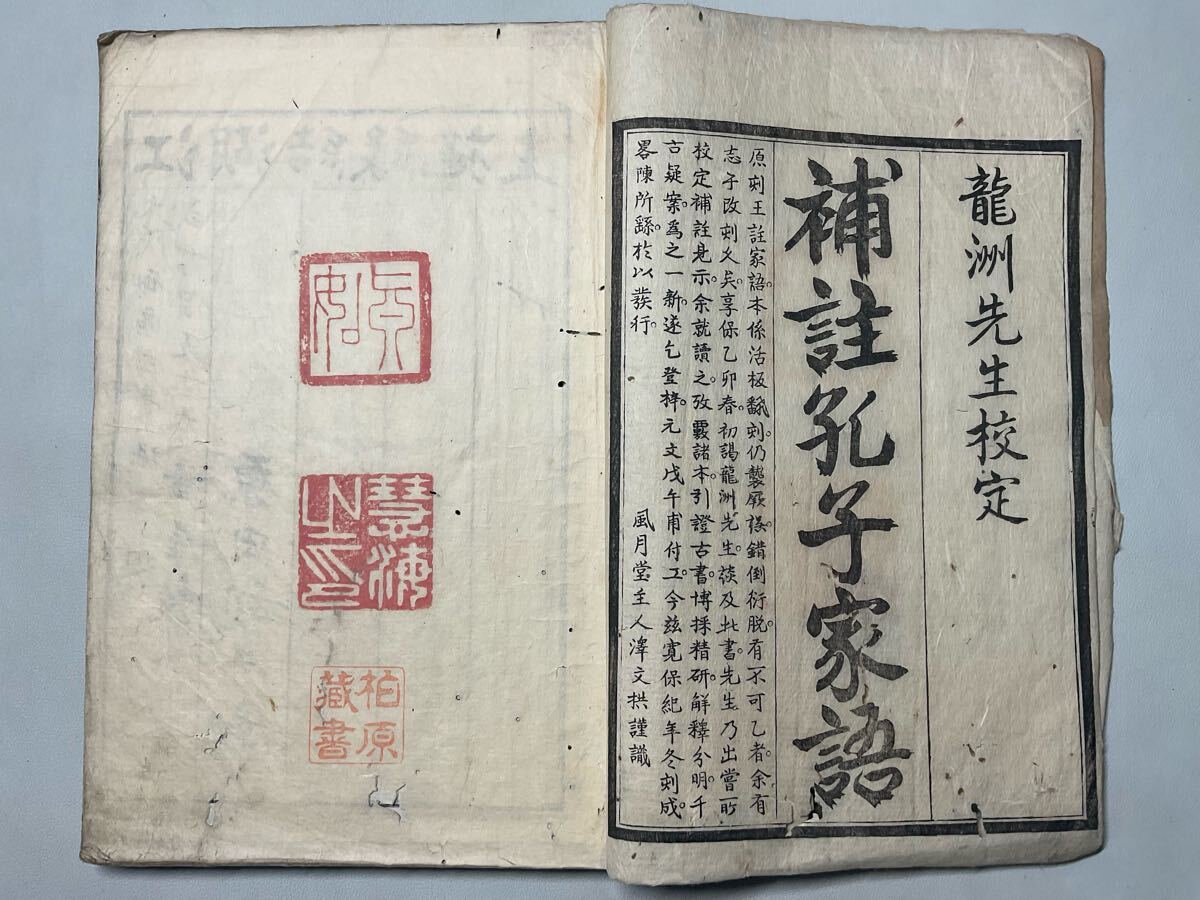 龍洲先生校定
補註孔子家語
原刻王註家語。本係活板飜刻。仍襲厥誤。錯倒衍脱。有不可乙者。余有
志于改刻久矣。享保乙卯春。初謁龍洲先生。談及此書。先生乃出嘗所
校定補註見示。余就讀之。攷覈諸本。引證古書。博採精研。解釋分明。千
古疑案。爲之一新。遂乞登梓。元文戊午甫付工。今兹寛保紀年冬刻成。
畧陳所繇。於以發行。
風月堂主人澤文拱謹識
慧海
之印
柏原
藏書